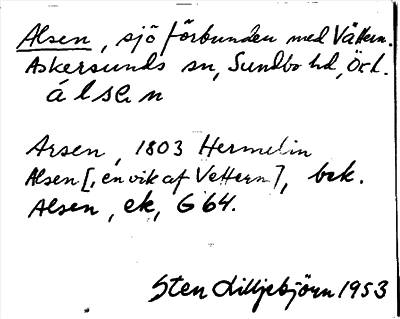 Alsen, sjö förbunden med Vättern.
Askersunds sn, Sundbo hd, Ör l.
álsen
Arsen, 1803 Hermelin
Alsen [, en vik af Vettern], bek.
Alsen, ek, G 64.
Sten Lilljebjörn 1953